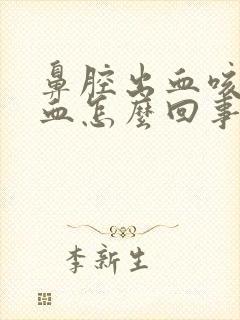 鼻腔出血咳
血怎麼回事
李新生